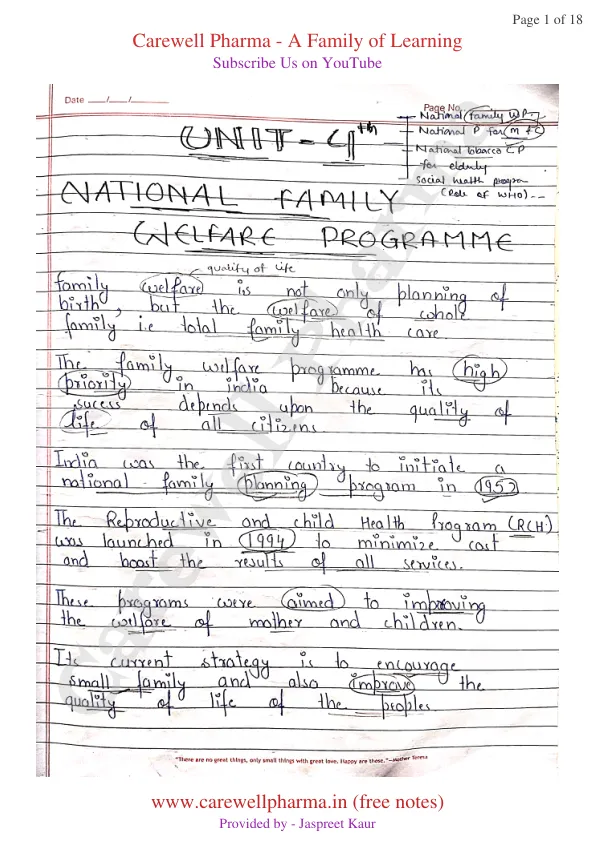 Page 1 of 18
Carewell Pharma - A Family of Learning
Subscribe Us on YouTube
Date __/__/__
Page No.
National family W P
National P for M & C
National tobacco C P
for elderly
Social health program
(Role of WHO)--
UNIT-4th
NATIONAL FAMILY
WELFARE PROGRAMME
quality of life
family welfare is not only planning of
birth, but the welfare of whole
family i.e total family health care
The family welfare programme has high
priority in india because its
sucess depends upon the quality of
life of all citizens
India was the first country to initiate a
national family planning program in 1952
The Reproductive and child Health Program (RCH)
was launched in 1994 to minimize cost
and boost the results of all services.
These programs were aimed to improving
the welfare of mother and children.
Its current strategy is to encourage
small family and also improve the
quality of life of the peoples.
"There are no great things, only small things with great love. Happy are these."—Mother Teresa
Carewell Pharma
www.carewellpharma.in (free notes)
Provided by - Jaspreet Kaur